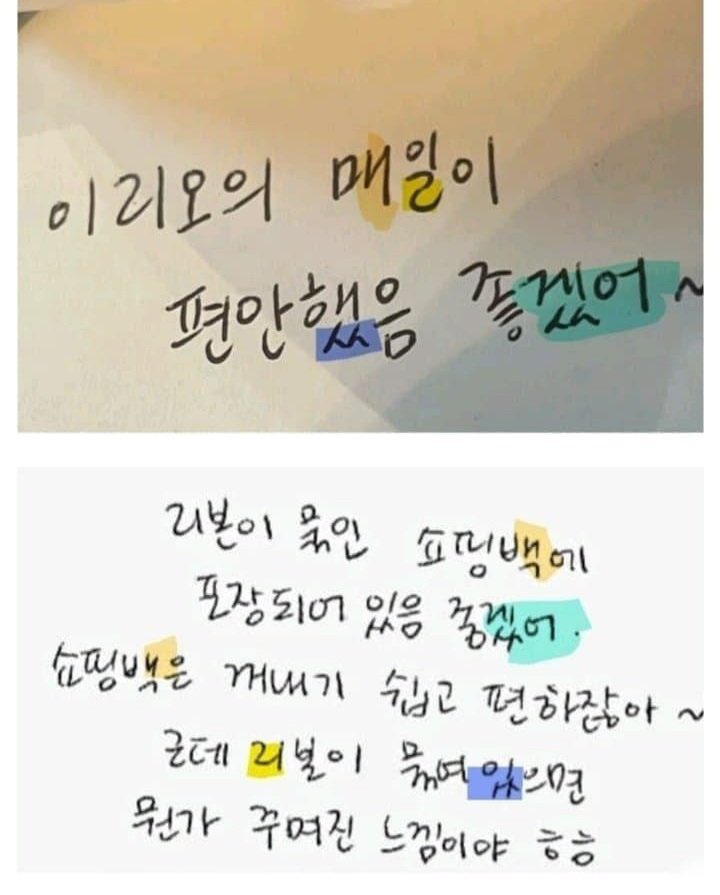 이리오의 매일이
편안했음 좋겠어~
리본이 묶인 쇼핑백에
포장되어 있음 좋겠어.
쇼핑백은 꺼내기 쉽고 편하잖아~
근데 리본이 묶여있으면
뭔가 꾸며진 느낌이야 ㅎㅎ